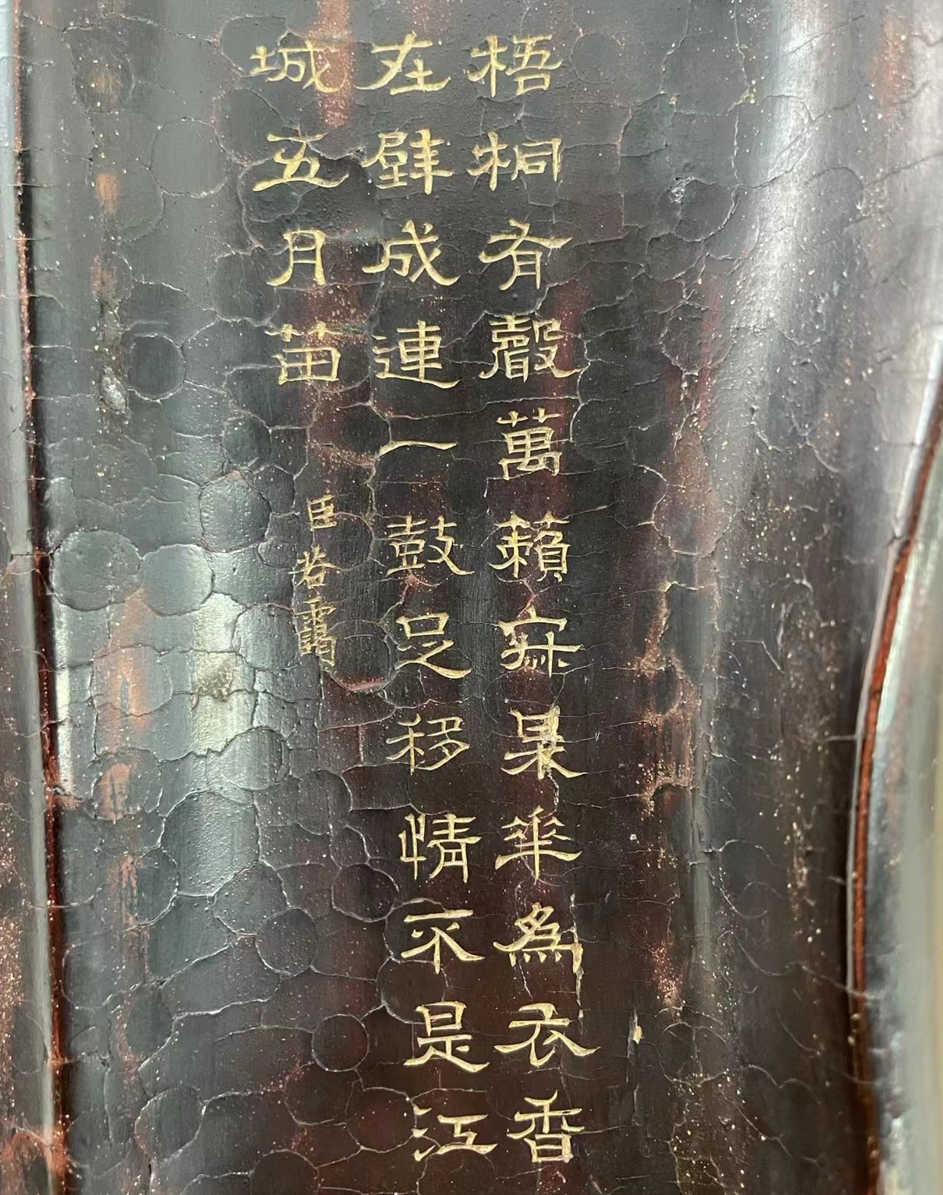 梧桐有聲萬籟寂華為衣香
在壁成連一鼓足移情不是江
城五月笛
臣若靄